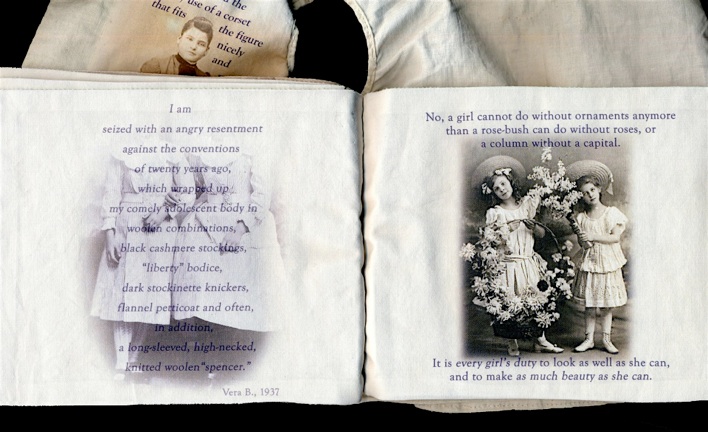 d the
use of a corset
that fits the figure
nicely
and
I am
seized with an angry resentment
against the conventions
of twenty years ago,
which wrapped up
my comely adolescent body in
woolen combinations,
black cashmere stockings,
"liberty" bodice,
dark stockinette knickers,
flannel petticoat and often,
in addition,
a long-sleeved, high-necked,
knitted woolen "spencer."
Vera B., 1937
No, a girl cannot do without ornaments anymore
than a rose-bush can do without roses, or
a column without a capital.
It is every girl's duty to look as well as she can,
and to make as much beauty as she can.